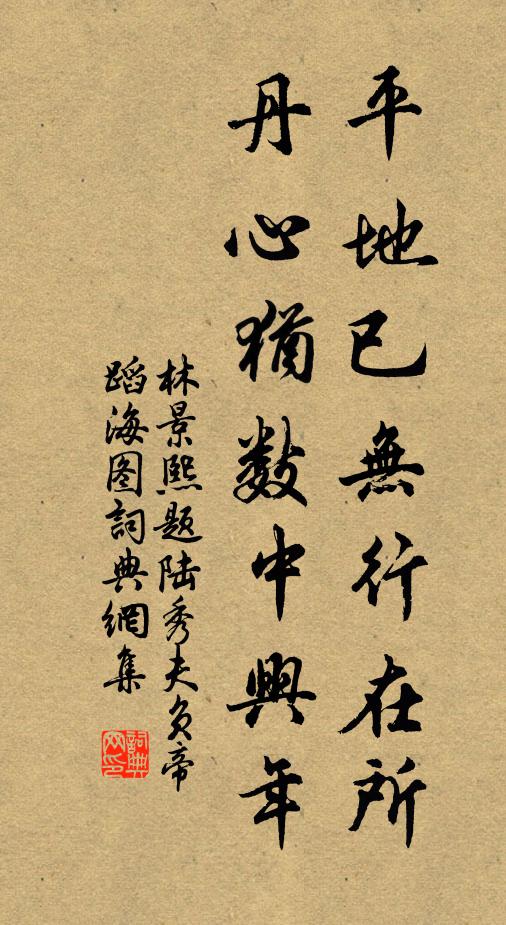 平地已無行在所
丹心猶數中興年
林景熙题陆秀夫负帝
蹈海图詞典網集
詞典
网印